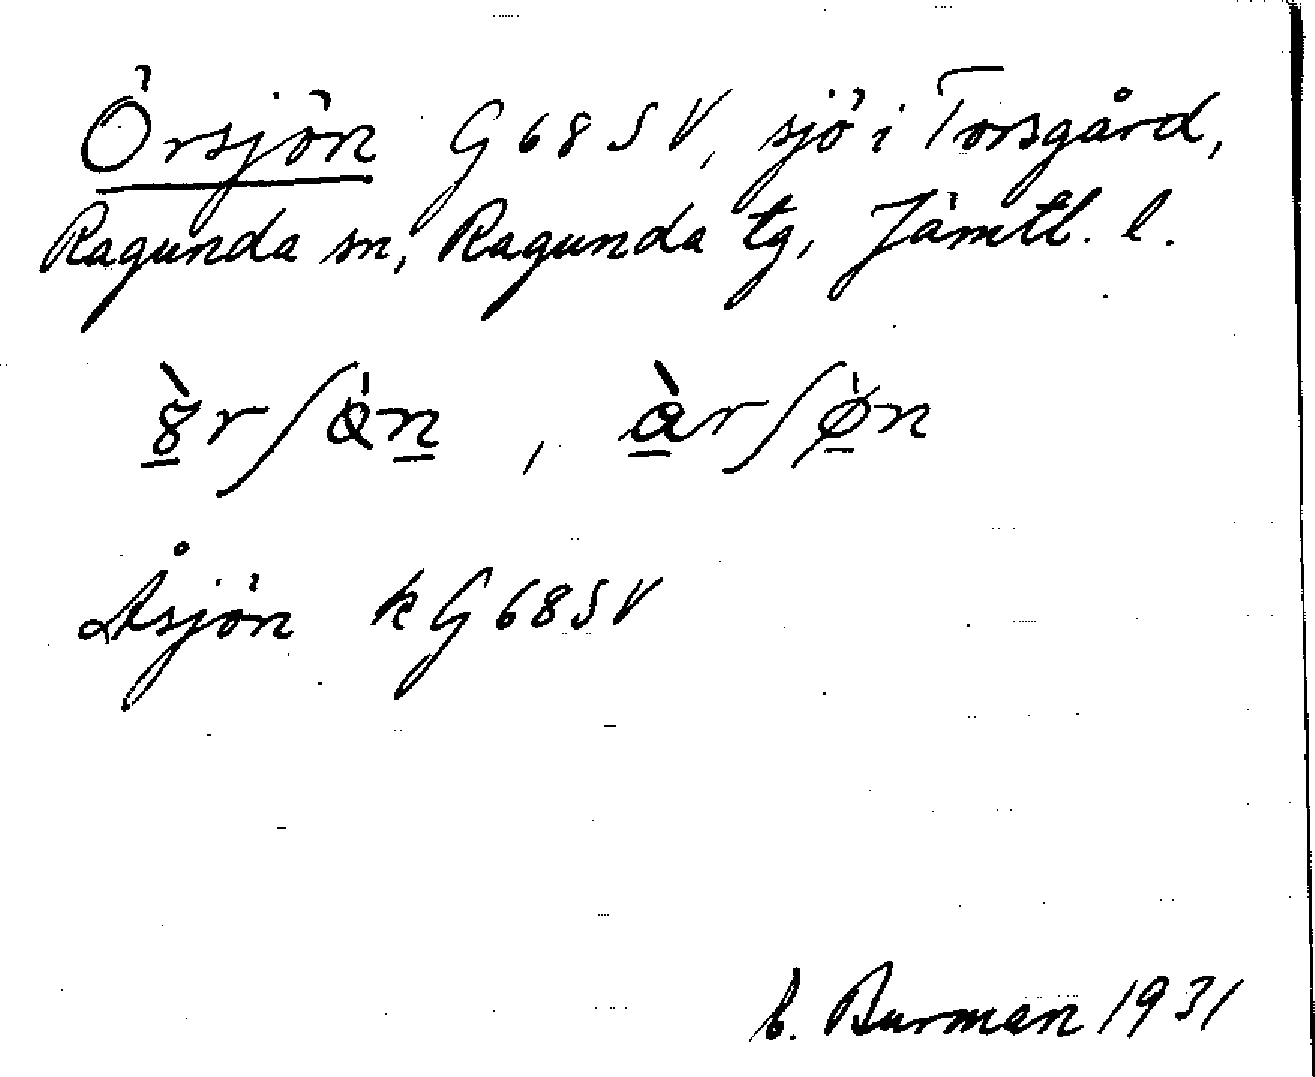 Örsjön G68SV, sjö i Torsgård,
Ragunda sn, Ragunda tg, Jämtl. l.
Åsjön k G68SV
Burman 1931